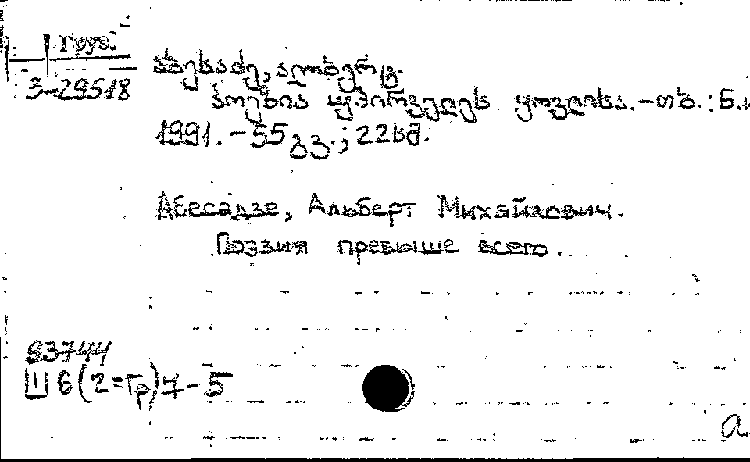 Груз.
3-29518
აბესაძე, ალბერტ.
პოეზია უპირველეს ყოვლისა. - თბ. : Б.и
1991. - 55 გვ. ; 22 სმ.
Абесадзе, Альберт Михайлович.
Поэзия превыше всего.
93744
Ш6(2=Гр)7-5
a